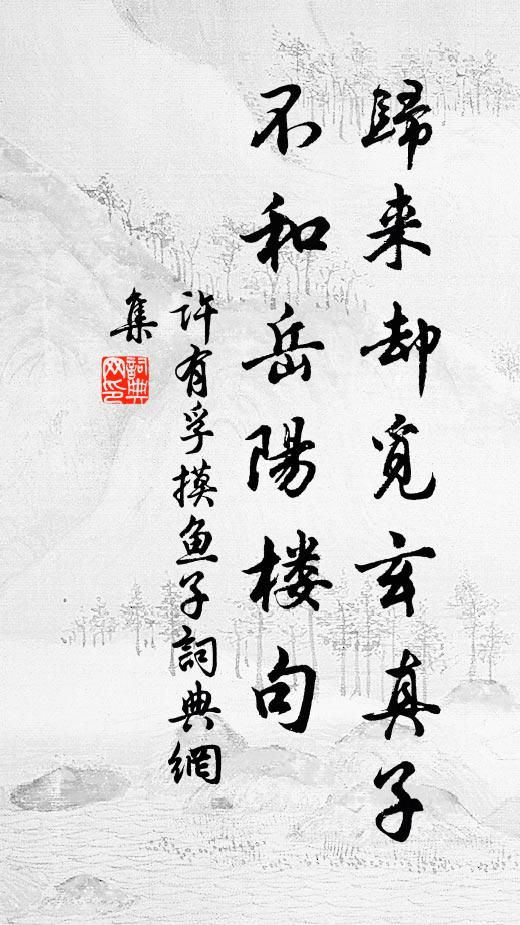 歸来却覓玄真子
不和岳陽楼句
许有孚摸鱼子詞典網
集
詞典网印